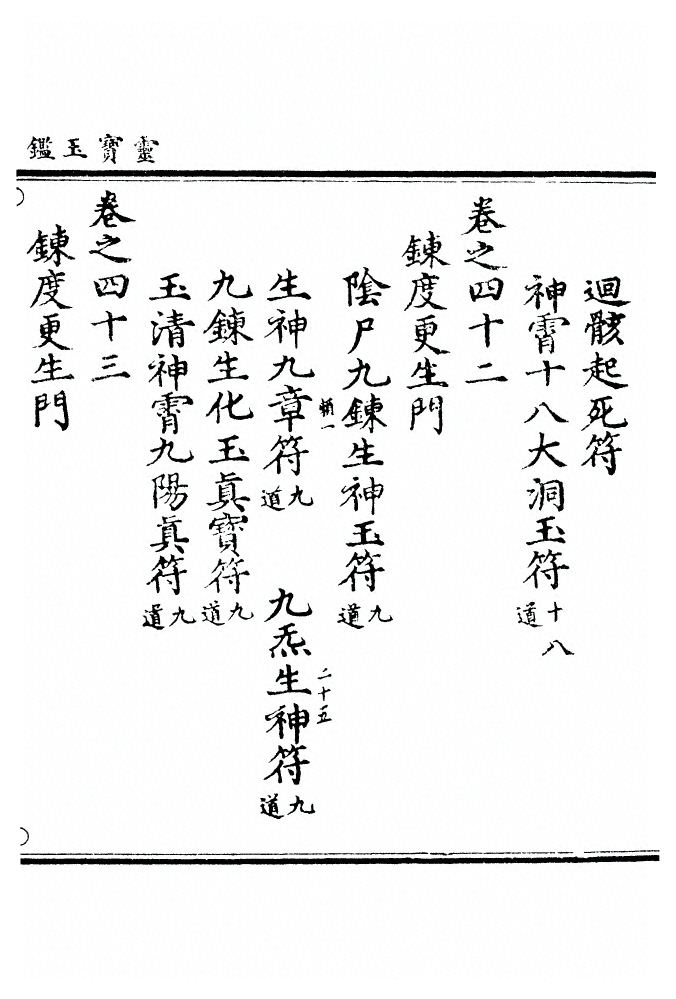 靈寶玉鑑
迴骸起死符
神霄十八大洞玉符十八道
卷之四十二
鍊度更生門
陰尸九鍊生神玉符九道
一
二十五
生神九章符九道 九炁生神符九道
九鍊生化玉眞寶符九道
玉清神霄九陽眞符九道
卷之四十三
鍊度更生門